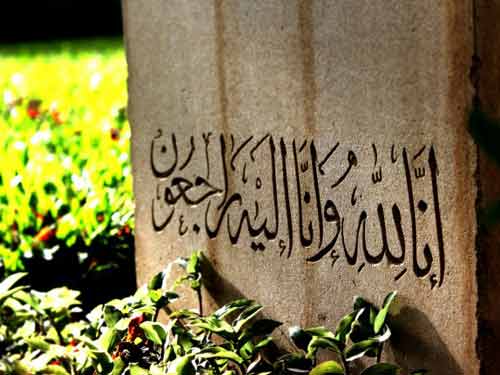 إنَّا لِلّٰهِ وَإنَّا إلَيْهِ رَاجِعُوْنَ